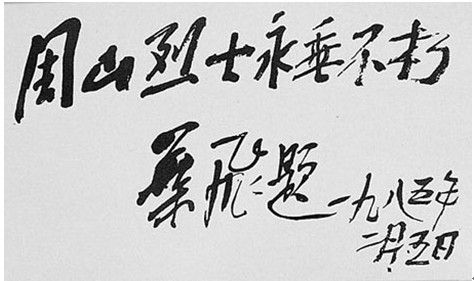 周山烈士永垂不朽
叶飞题一九八五年
二月五日